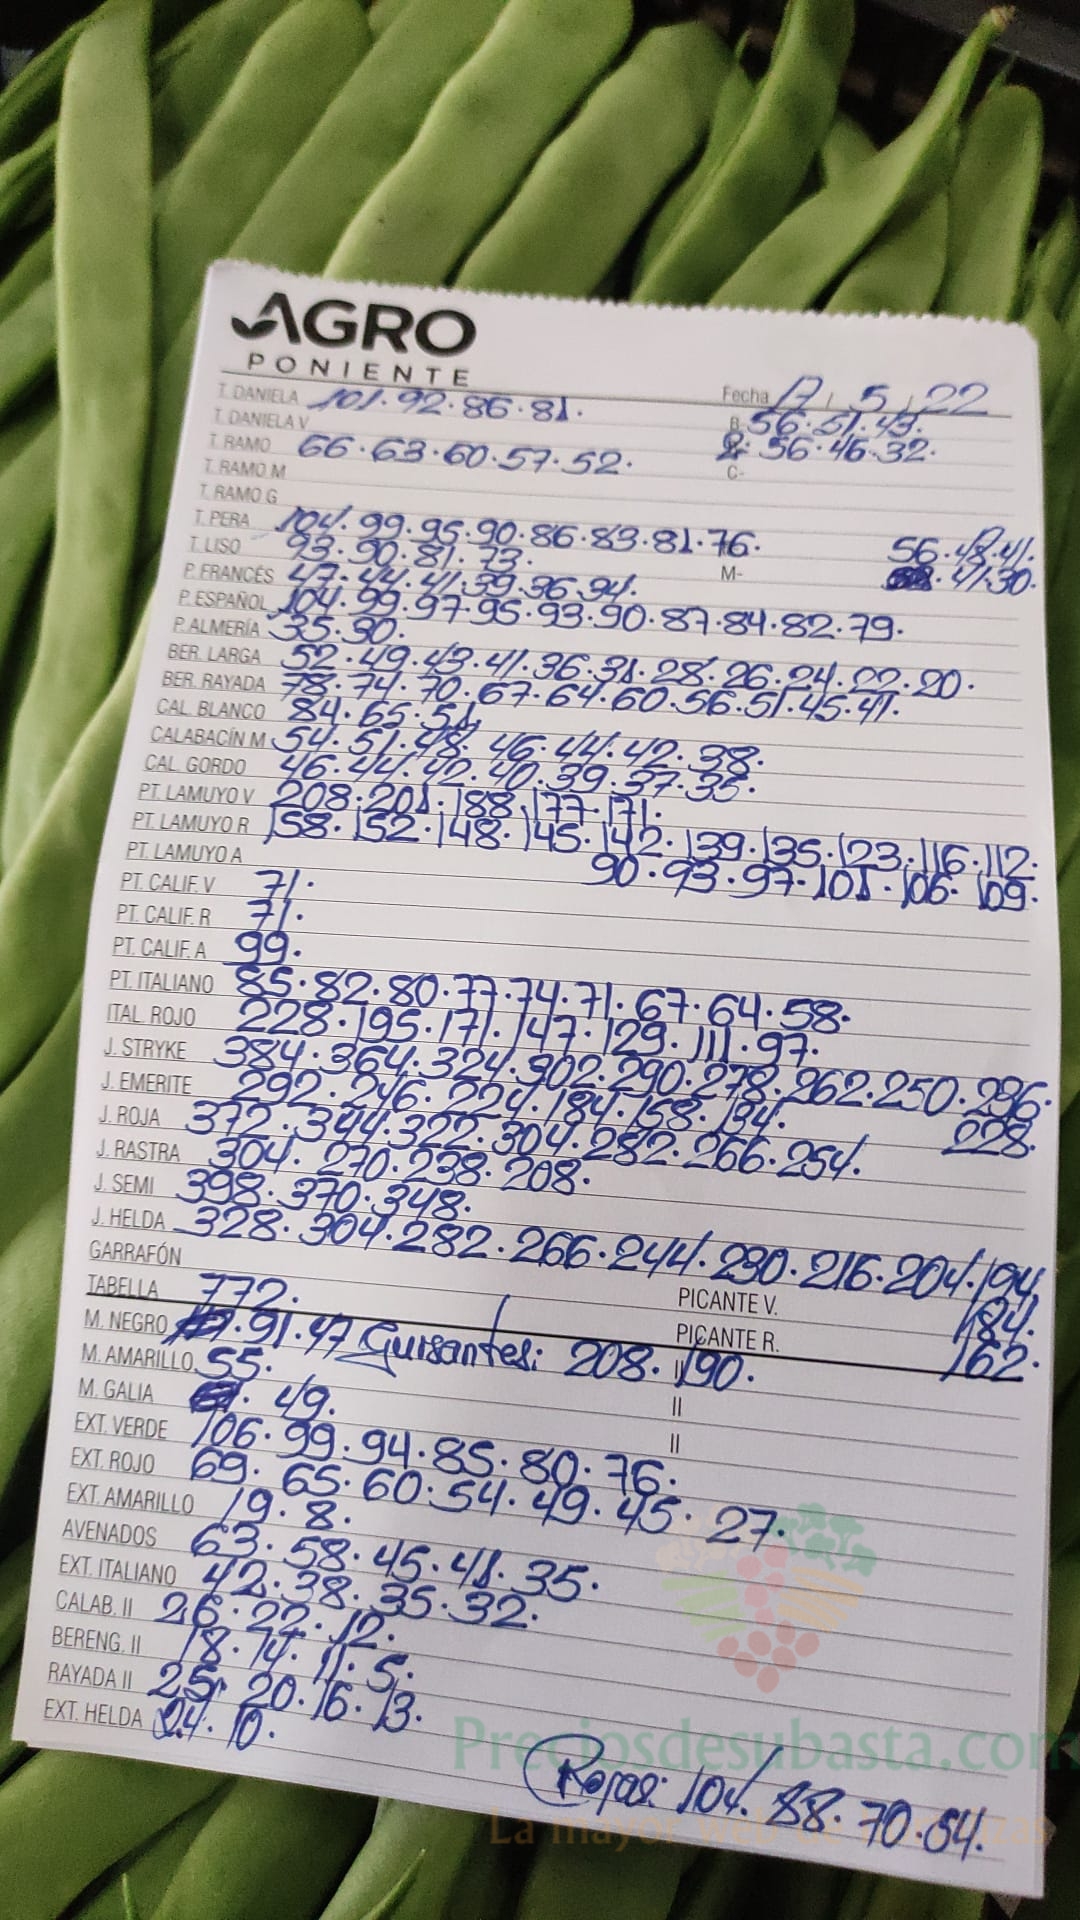 AGRO
PONIENTE
Fecha 17 / 5 / 22
T. DANIELA 101. 92. 86. 81. B- 56. 51. 43.
T. DANIELA V
T. RAMO 66. 63. 60. 57. 52. 56. 46. 32.
T. RAMO M C-
T. RAMO G
T. PERA 104. 99. 95. 90. 86. 83. 81. 76. 56. 48. 41.
T. LISO 93. 90. 81. 73. M- 41. 30.
P. FRANCÉS 47. 44. 41. 39. 36. 34.
P. ESPAÑOL 104. 99. 97. 95. 93. 90. 87. 84. 82. 79.
P. ALMERÍA 35. 30.
BER. LARGA 52. 49. 43. 41. 36. 31. 28. 26. 24. 22. 20.
BER. RAYADA 78. 74. 70. 67. 64. 60. 56. 51. 45. 41.
CAL. BLANCO 84. 65. 51.
CALABACÍN M 54. 51. 48. 46. 44. 42. 38.
CAL. GORDO 46. 44. 42. 40. 39. 37. 35.
PT. LAMUYO V 208. 201. 188. 177. 171.
PT. LAMUYO R 158. 152. 148. 145. 142. 139. 135. 123. 116. 112.
PT. LAMUYO A 90. 93. 97. 101. 106. 109.
PT. CALIF. V 71.
PT. CALIF. R 71.
PT. CALIF. A 99.
PT. ITALIANO 85. 82. 80. 77. 74. 71. 67. 64. 58.
ITAL. ROJO 228. 195. 171. 147. 129. 111. 97.
J. STRYKE 384. 364. 324. 302. 290. 278. 262. 250. 236.
J. EMERITE 292. 246. 224. 184. 158. 134. 228.
J. ROJA 372. 344. 322. 304. 282. 266. 254.
J. RASTRA 304. 270. 238. 208.
J. SEMI 398. 370. 348.
J. HELDA 328. 304. 282. 266. 244. 230. 216. 204. 194.
GARRAFÓN PICANTE V. 184.
TABELLA 772. PICANTE R. 162.
M. NEGRO 91. 47 Guisantes: 208. 190.
M. AMARILLO 55. II
M. GALIA 49. II
EXT. VERDE 106. 99. 94. 85. 80. 76.
EXT. ROJO 69. 65. 60. 54. 49. 45. 27.
EXT. AMARILLO 19. 8.
AVENADOS 63. 58. 45. 41. 35.
EXT. ITALIANO 42. 38. 35. 32.
CALAB. II 26. 22. 12.
BERENG. II 18. 14. 11. 5.
RAYADA II 25. 20. 16. 13.
EXT. HELDA 24. 10.
Preciosdesubasta.com
Rojas: 104. 88. 70. 54.
La mayor web de